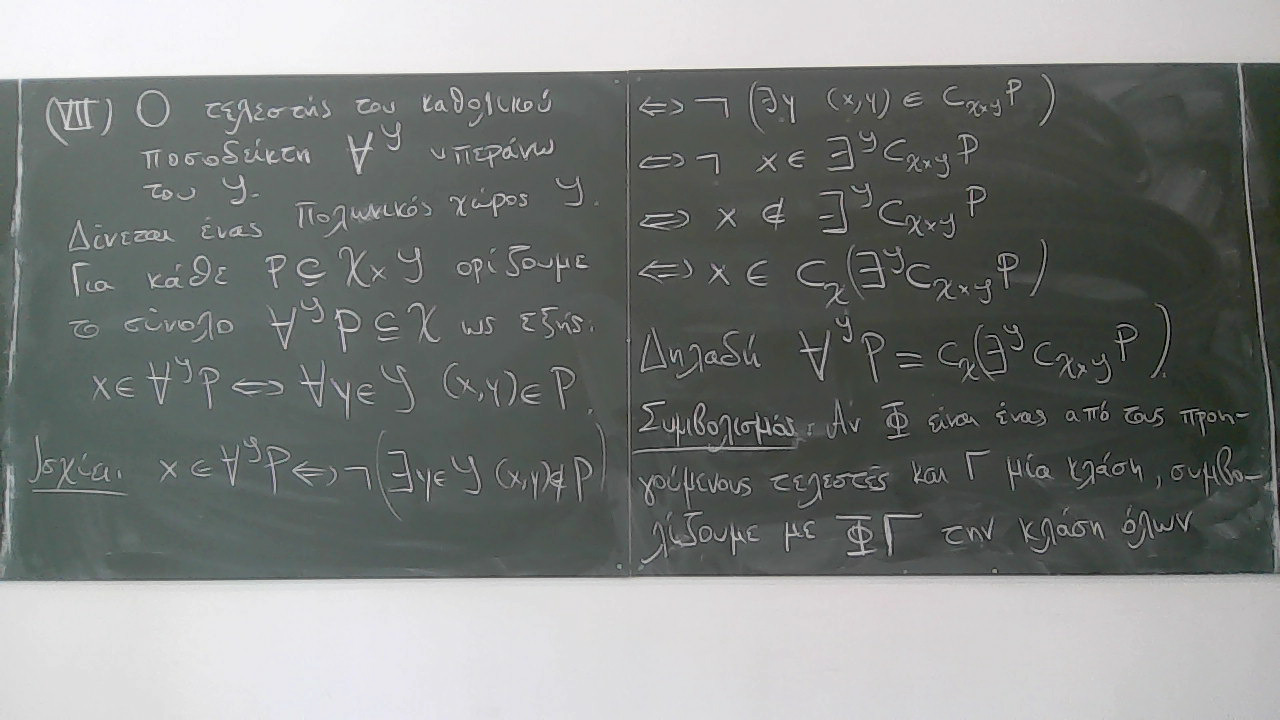 (VII) Ο τελεστής του καθολικού
ποσοδείκτη ∀^𝒴 υπεράνω
του 𝒴.
Δίνεται ένας Πολωνικός χώρος 𝒴.
Για κάθε P ⊆ 𝒳 × 𝒴 ορίζουμε
το σύνολο ∀^𝒴 P ⊆ 𝒳 ως εξής:
x ∈ ∀^𝒴 P ⇔ ∀y ∈ 𝒴 (x,y) ∈ P.
Ισχύει: x ∈ ∀^𝒴 P ⇔ ¬(∃y ∈ 𝒴 (x,y) ∉ P)
⇔ ¬ (∃y (x,y) ∈ C_{𝒳×𝒴} P)
⇔ ¬ x ∈ ∃^𝒴 C_{𝒳×𝒴} P
⇔ x ∉ ∃^𝒴 C_{𝒳×𝒴} P
⇔ x ∈ C_𝒳 (∃^𝒴 C_{𝒳×𝒴} P)
Δηλαδή ∀^𝒴 P = C_𝒳 (∃^𝒴 C_{𝒳×𝒴} P).
Συμβολισμός: Αν Φ είναι ένας από τους προη-
γούμενους τελεστές και Γ μία κλάση, συμβο-
λίζουμε με ΦΓ την κλάση όλων